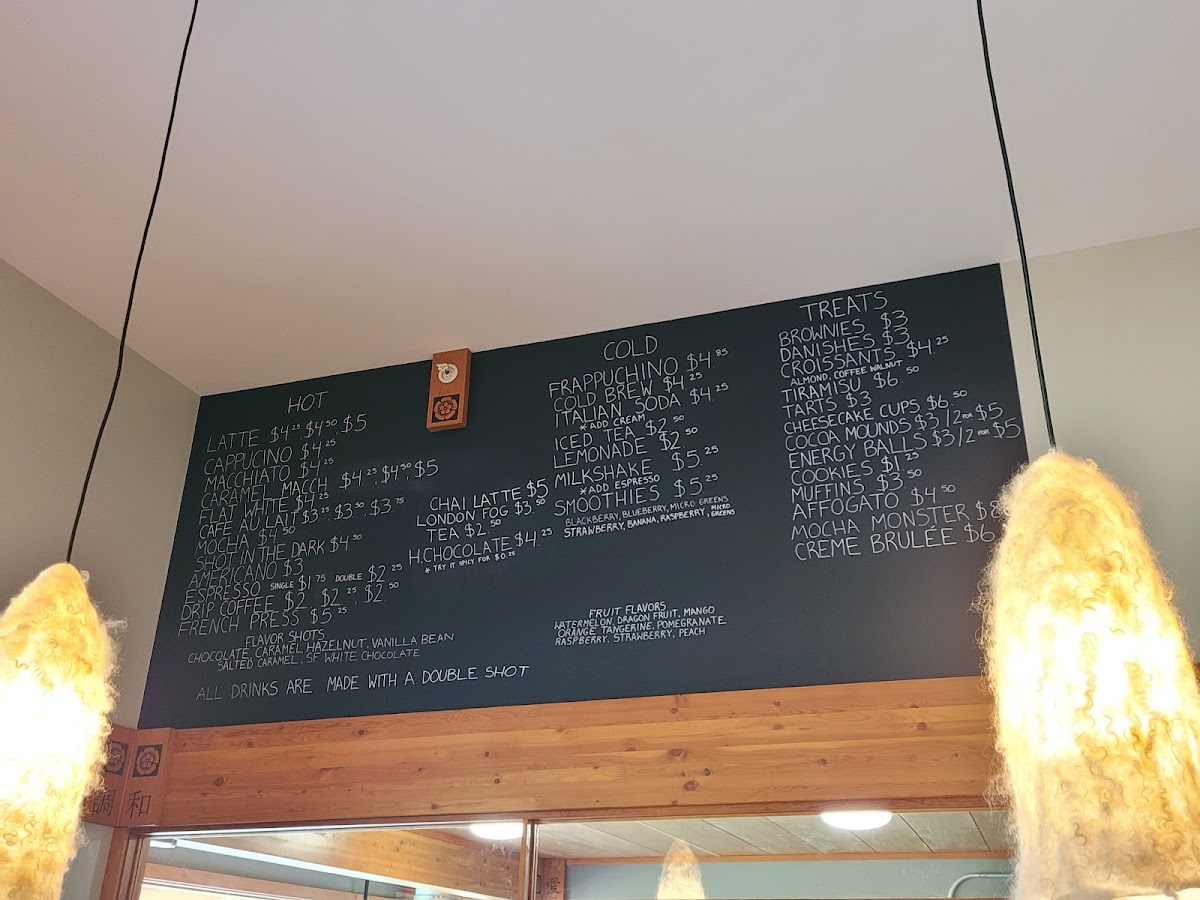 HOT
LATTE $4.25 $4.50 $5
CAPPUCINO $4.25
MACCHIATO $4.25
CARAMEL MACCH. $4.25 $4.50 $5
FLAT WHITE $4.25
CAFE AU LAIT $3.25, $3.50, $3.75
MOCHA $4.50
SHOT IN THE DARK $4.50
AMERICANO $3
ESPRESSO SINGLE $1.75 DOUBLE $2.25
DRIP COFFEE $2, $2.25, $2.50
FRENCH PRESS $5.25
FLAVOR SHOTS
CHOCOLATE, CARAMEL, HAZELNUT, VANILLA BEAN
SALTED CARAMEL, SF WHITE CHOCOLATE
ALL DRINKS ARE MADE WITH A DOUBLE SHOT
CHAI LATTE $5
LONDON FOG $3.50
TEA $2.50
H.CHOCOLATE $4.25
* TRY IT SPICY FOR $0.25
COLD
FRAPPUCHINO $4.85
COLD BREW $4.25
ITALIAN SODA $4.25
*ADD CREAM
ICED TEA $2.50
LEMONADE $2.50
MILKSHAKE $5.25
*ADD ESPRESSO
SMOOTHIES $5.25
BLACKBERRY, BLUEBERRY, MICRO GREENS
STRAWBERRY, BANANA, RASPBERRY, MICRO GREENS
FRUIT FLAVORS
WATERMELON, DRAGON FRUIT, MANGO
ORANGE TANGERINE, POMEGRANATE
RASPBERRY, STRAWBERRY, PEACH
TREATS
BROWNIES $3
DANISHES $3
CROISSANTS $4.25
ALMOND, COFFEE WALNUT
TIRAMISU $6.50
TARTS $3
CHEESECAKE CUPS $6.50
COCOA MOUNDS $3/2 FOR $5
ENERGY BALLS $3/2 FOR $5
COOKIES $1.25
MUFFINS $3.50
AFFOGATO $4.50
MOCHA MONSTER $8
CREME BRULÉE $6
調 和
愛